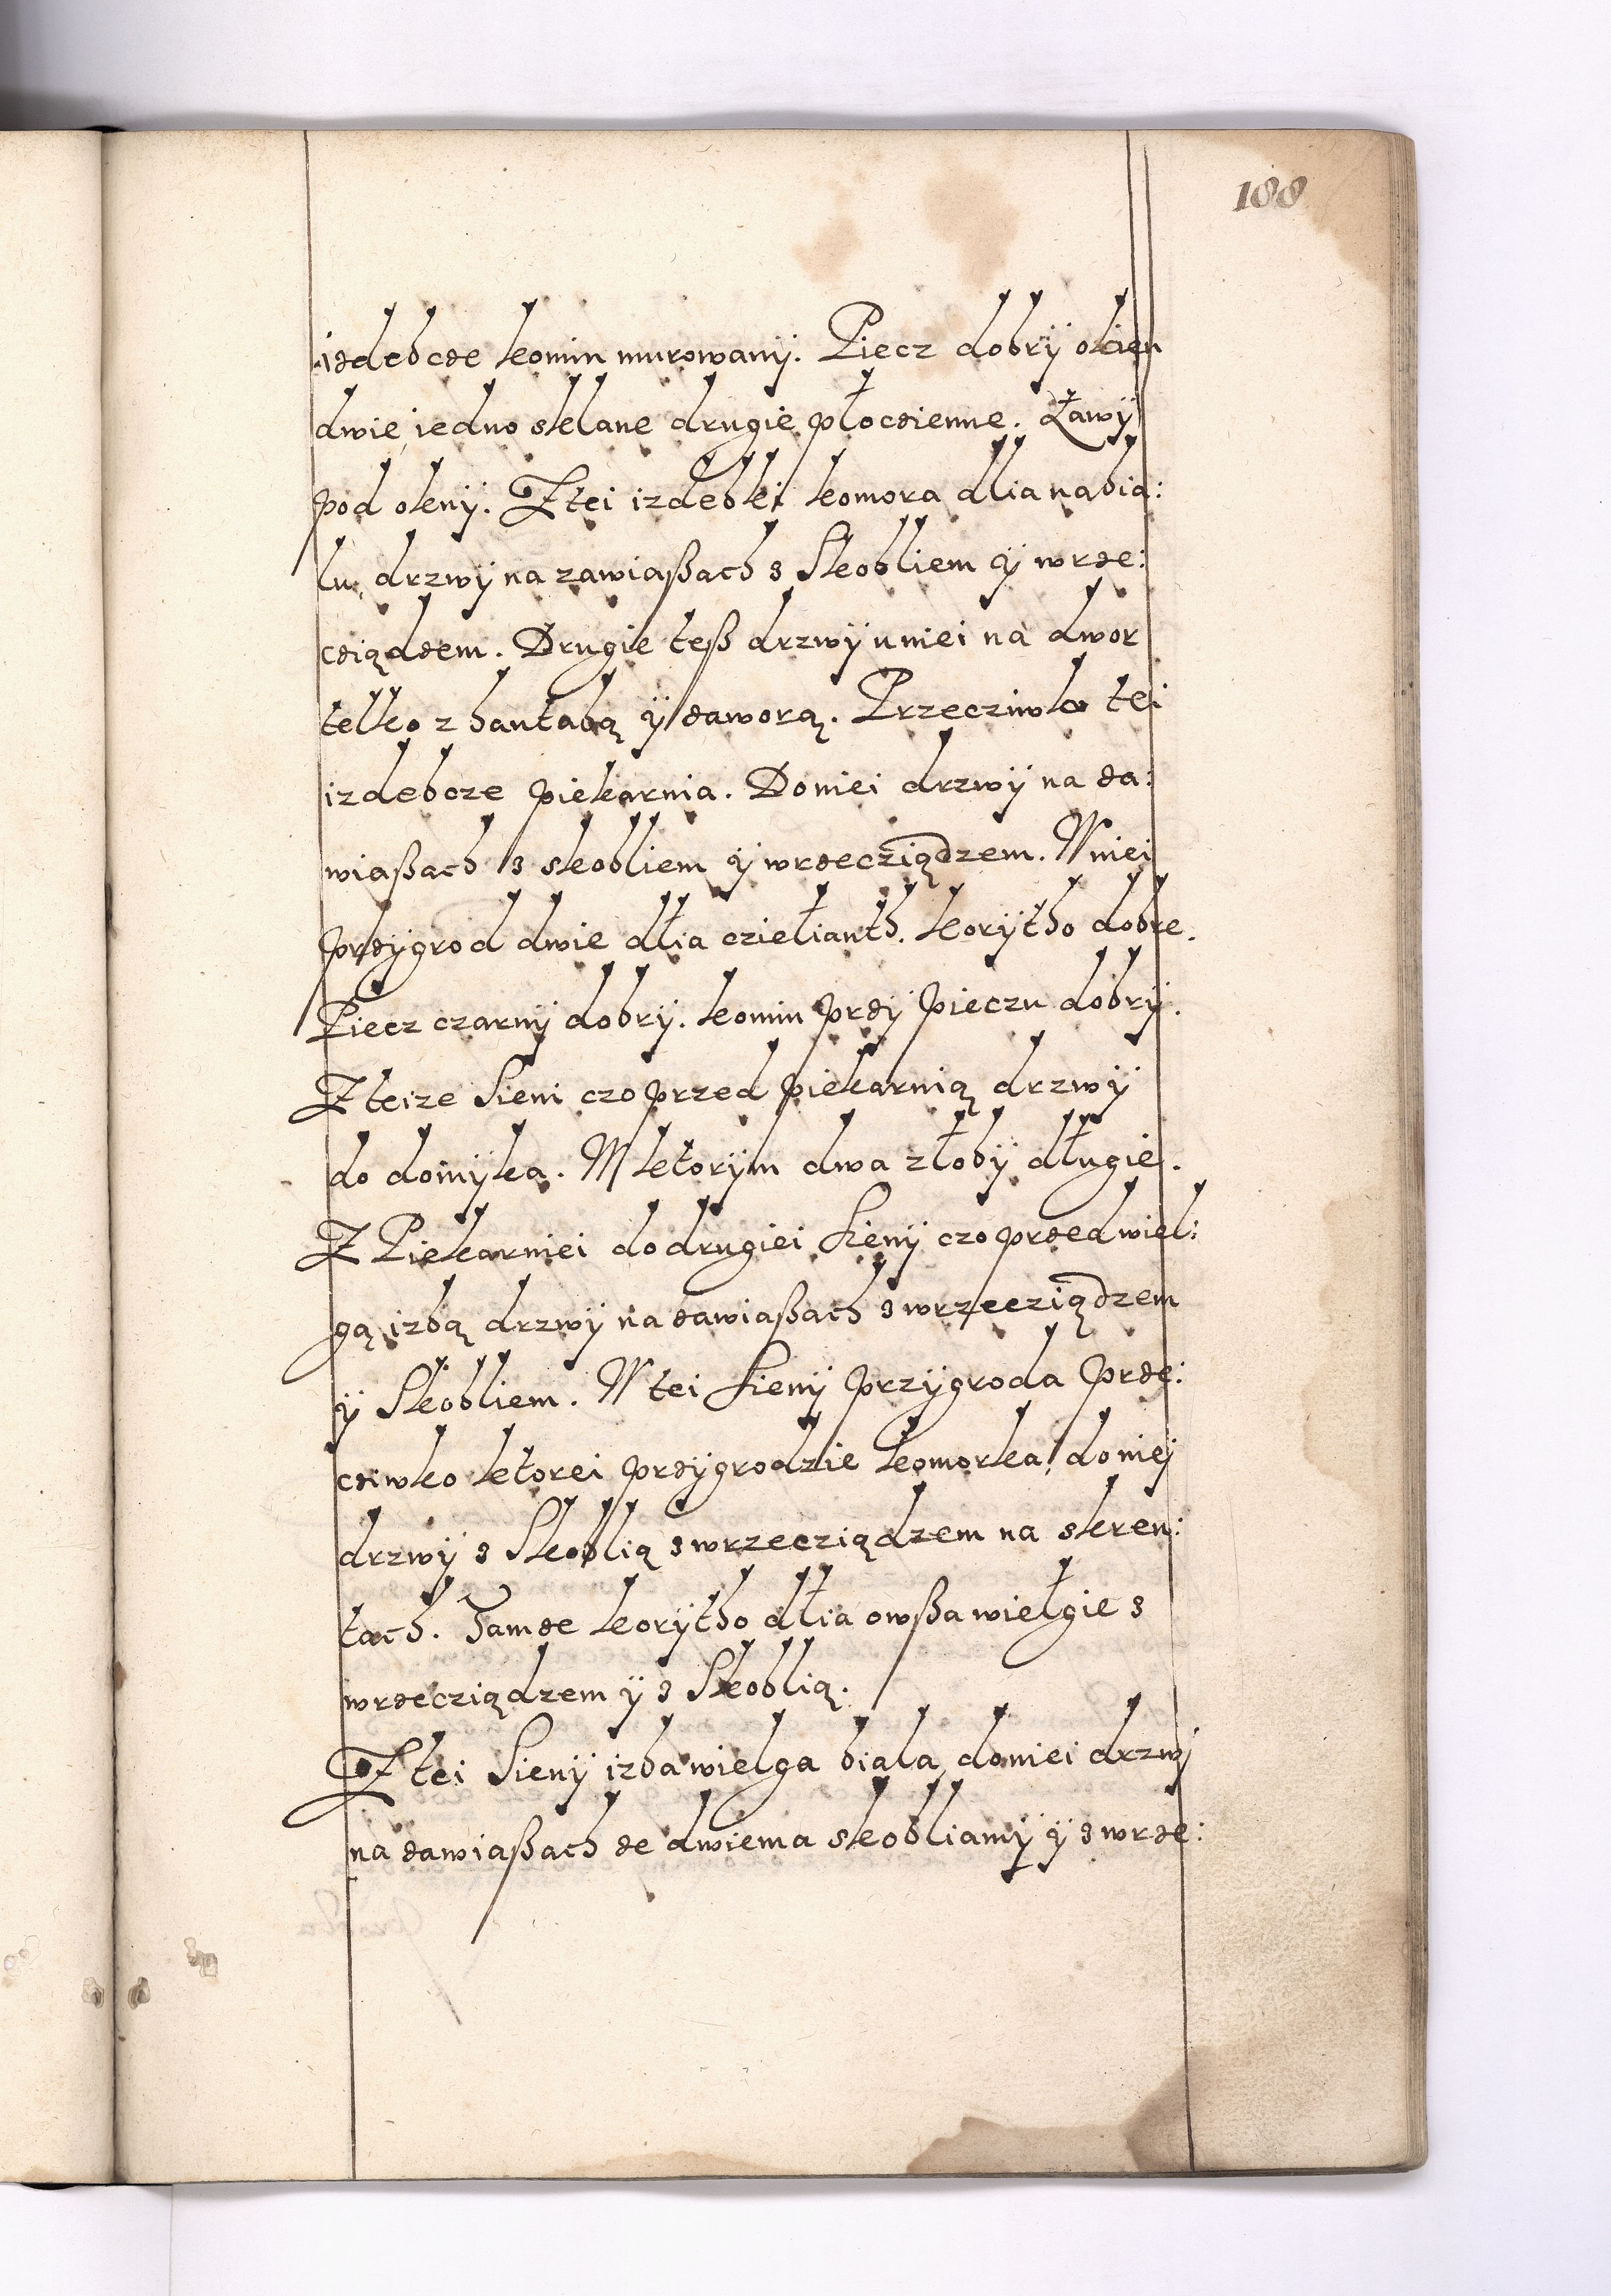 188
izdebcze komin murowany. Piecz dobrÿ okien
dwie jedno sklane drugie płoczienne. Ławÿ
pod oknÿ. Z tei izdebki komora dlia nabia:
lu, drzwÿ na zawiaßach z Skobliem ÿ wrze:
cziądzem. Drugie teß drzwÿ u niei na dwor
telko z hantabą ÿ zaworą. Przecziwko tei
izdebcze piekarnia. Do niei drzwÿ na za:
wiaßach z skobliem ÿ wrzecziądzem. W niei
przÿgrod dwie dłia czielianth. korÿtho dobre.
Piecz czarnÿ dobrÿ. komin przÿ pieczu dobrÿ.
Z teize Sieni czo przed piekarnią drzwÿ
do domÿka. W ktorÿm dwa złobÿ długie.
Z Piekarniei do drugiei Sienÿ czo przed wiel:
gą izbą drzwÿ na zawiaßach z wrzecziądzem
ÿ Skobliem. W tei Sienÿ przÿgroda prze:
cziwko ktorei przÿgrodzie komorka, do niej
drzwÿ z Skoblią z wrzecziądzem na skren:
tach. Tamze korÿtho dłia owßa wielgie z
wrzecziądzem ÿ z Skoblią.
Z tei Sienÿ izba wielga biala, do niei drzwj
na zawiaßach ze dwiema skobliamÿ ÿ z wrze: